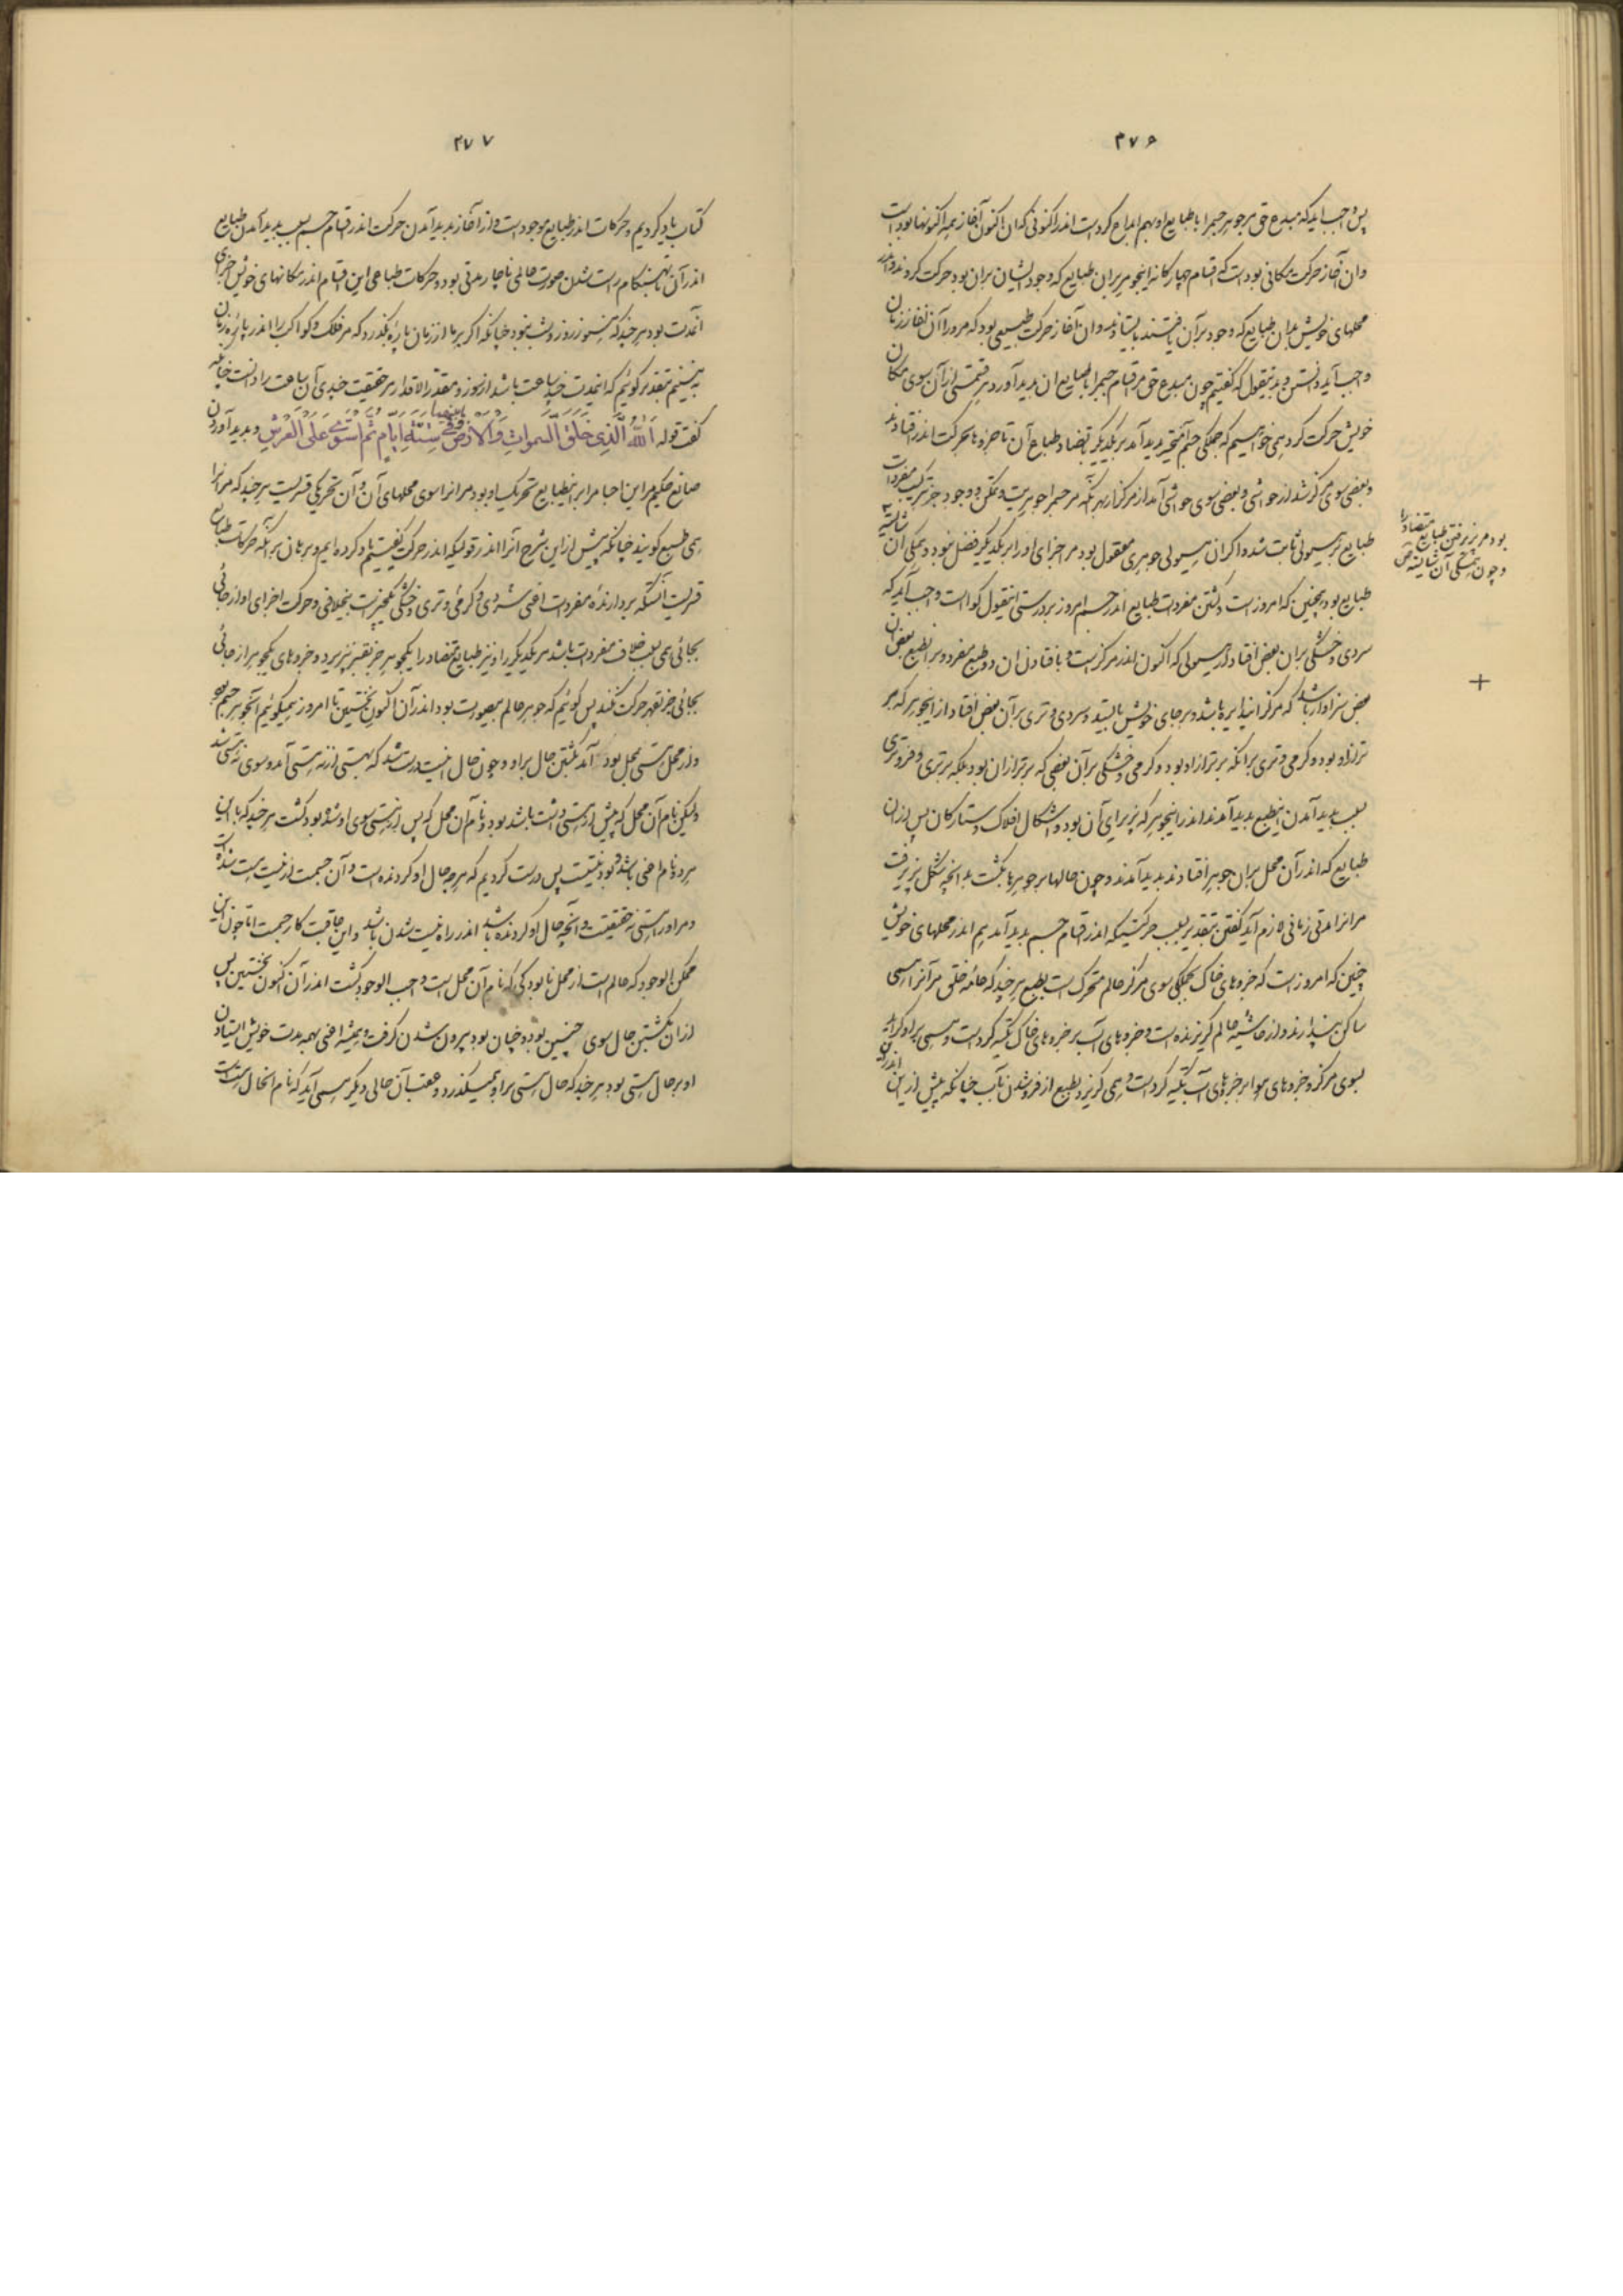 ۲۷۶
پس واجب آید که مبدع حق مر جوهر جسم را با طبایع او بهم ابداع کرده است اندر اکنونی که آن اکنون آغاز همه اکنونها بوده است
وان آغاز حرکت مکانی بوده است که اقسام چهارگانه اینجوهر بران طبایع که وجود ایشان بران بود حرکت کردند و اندر
محلهای خویش بدان طبایع که وجود بر آن یافتند بایستادند وان آغاز حرکت طبیعی بود که مرورا آن آغاز زمان
واجب آید دانستن و بدینقول که گفتیم چون مبدع حق مر اقسام جسم را با طبایع ان پدید آورد هر قسمتی از آن سوی مکان
خویش حرکت کرد همی خواهیم که جملگی جسم متحیز پدید آمد بر یکدیگر بتضاد طباع آن تا جزوها بحرکت اندر افتادند
و بعضی سوی مرکز شد از حواشی و بعضی سوی حواشی آمد از مرکز از بهر آنکه مر جسم را جوهریت و تمکن و وجود جز بترکیب مفردات
طبایع بر هیولی ثابت نشد و اگر آن هیولی جوهری معقول بود مر اجزای او را بر یکدیگر فضل نبود و همگی آن شایسته
بود مر پذیرفتن طبایع متضاد را
و چون همگی آن شایسته ص
طبایع بود همچنین که امروز است و گشتن مفردات طبایع اندر جسم امروز بر درستی اینقول گواه است واجب آید که
سردی و خشکی بران بعض افتاد از هیولی که اکنون اندر مرکز است و با فتادن ان دو طبع مفرد و برا نطبع بعض آن
بعض سزاوار باشد که مرکز انبدایره باشد و بر جای خویش بایستد و سردی و تری بر آن بعض افتاد از اینجوهر که بر
تر از او بود و گرمی و تری بر انکه برتر از او بود و گرمی و خشکی بر آن بعضی که برتر از ان بود بلکه برتری و فروتری
بسبب پدید آمدن اینطبع پدید آمدند اندر اینجوهر که پذیرای آن بود و اشکال افلاک و ستارگان پس از ان
طبایع که اندر آن محل بران جوهر افتادند پدید آمدند و چون حالها بر جوهرها بگشت بدانچه شکل پذیرفت
مر انرا مدتی زمانی لازم آید گفتن بتقدیر بسبب حرکتیکه اندر اقسام جسم پدید آمد هم اندر محلهای خویش
چنین که امروز است که جزوهای خاک بجملگی سوی مرکز عالم متحرک است بطبع هر چند که عامه خلق مر آنرا همی
ساکن پندارند و از حاشیه عالم گریزنده است و جزوهای آب بر جزوهای خاک تکیه کرده است و همی بر او گراید
بسوی مرکز و جزوهای هوا بر جزوهای آب تکیه کرده است و همی گریزد بطبع از فرو شدن بآب چنانکه پیش از این اندرین
۲۷۷
کتاب یاد کردیم و حرکات اندر طبایع موجود است و از آغاز پدید آمدن حرکت اندر اقسام جسم بسبب پدید آمدن طبایع
اندر آن تا بهنگام راست شدن صورت عالمی ناچار مدتی بود و حرکات طباعی این اقسام اندر مکانهای خویش اجزای
آنمدت بود هر چند که هنوز روز و شب نبود چنانکه اگر بر ما از زمان پاره بگذرد که مر فلک و کواکب را اندر پاره زمان
نه بینیم بتقدیر گوئیم که اینمدت چند ساعت باشد از روز و مقدر الاقدار بر حقیقت چندی آن ساعت را دانست چنانکه
گفت قوله اَللهُ الَّذی خَلَقَ السَّمواتِ وَالاَرْضَ وَما بَیْنَهُما فی سِتَّةِ اَیّامٍ ثُمَّ اسْتَوی عَلَی الْعَرْشِ و پدید آوردن
صانع حکیم مر این اجسام را بر اینطبایع تحریک او بود مر انرا سوی محلهای آن و آن تحریکی قسریست هر چند که مر انرا
همی طبیعی گویند چنانکه پیش از این شرح آنرا اندر قولیکه اندر حرکت گفتیم یاد کرده ایم و برهان بر آنکه حرکات طبایع
قسریست آنستکه بردارنده مفردات اعنی سردی و گرمی و تری و خشکی یکجوهر است بیخلافی و حرکت اجزای او از جائی
بجائی همی بسبب خلاف مفردات باشد مر یکدیگر را و نیز طبایع متضاد را یکجوهر جز بقسر نپذیرد و جزوهای یکجوهر از جائی
بجائی جز بقهر حرکت نکند پس گوئیم که جوهر عالم بیصورت بود اندر آن اکنون نخستین تا امروز همیگوئیم آنجوهر جسم بود
و از محل نیستی بمحل بود آمد بگشتن حال بر او و چون حال اینست درست شد که هستی از نه هستی آمد و سوی نه هستی شد
ولیکن نام آن محل که پیش از هستی داشت باشد بود و نام آن محل که پس از هستی سوی او شد بود گشت هر چند که باین
هر دو نام اعنی باشد و بود نیست پس درست کردیم که هر چه حال او گردنده است و آن جسمست از نیست هست شده است
و مر او را هستی نه حقیقت و آنچه حال او گردنده باشد اندر راه نیست شدن باشد و این عاقبت کار جسمست اما چون این
ممکن الوجود که عالم است از محل نابودگی که نام آن محل است واجب الوجود گشت اندر آن اکنون نخستین پس
از ان بگشتن حال سوی چنین بود و چنان بود بیرون شدن گرفت و همیشه اعنی بهمه مدت خویش ایستادن
او بر حال هستی بود هر چند که حال هستی بر او همیگذرد و بعقب آن حالی دیگر همی آید که نام انحال هست است